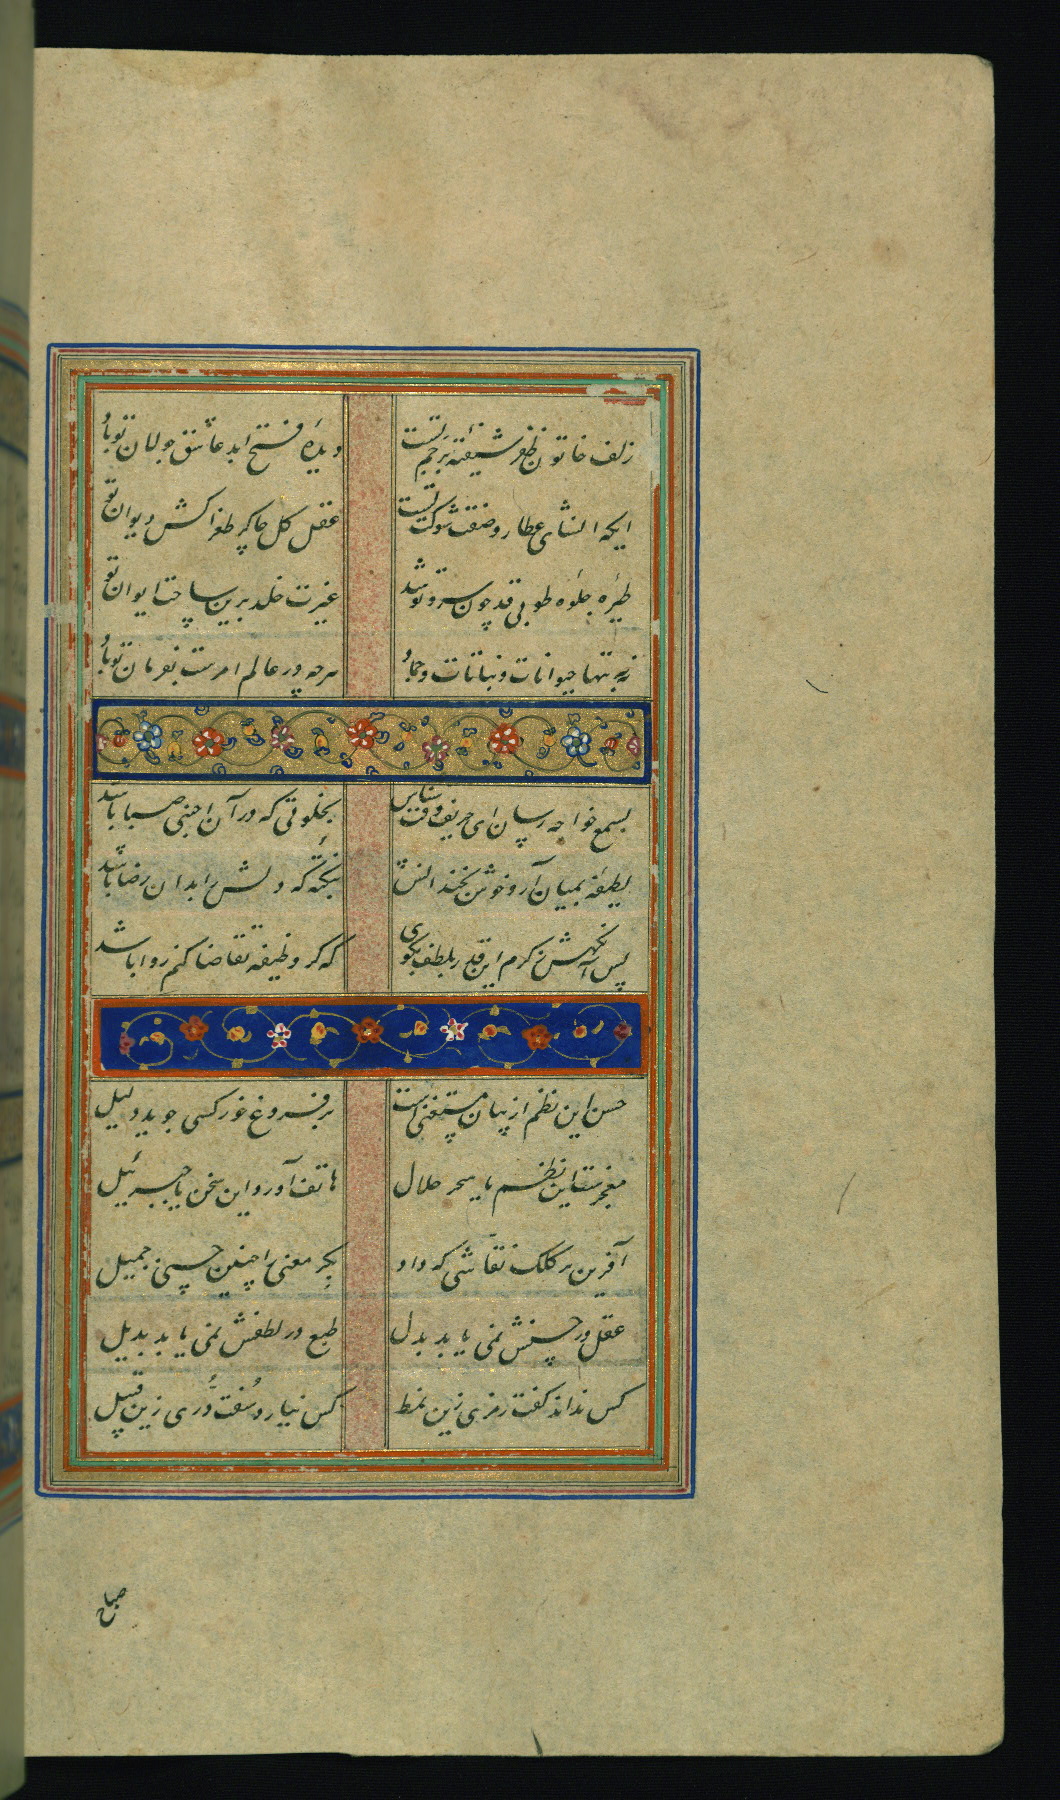 زلف خاتون ظفر شیفتهٔ پرچم تست
دیدهٔ فتح ابد عاشق جولان تو باد
ایکه انشای عطارد صفت شوکت تست
عقل کل چاکر طغراکش دیوان تو باد
طیرهٔ جلوهٔ طوبی قد چون سرو تو شد
غیرت خلد برین ساحت ایوان تو باد
نه بتنها حیوانات و نباتات و جماد
هرچه در عالم امرست بفرمان تو باد
بسمع خواجه رسان ای حریف وقت شناس
بخلوتی که در آن اجنبی صبا باشد
لطیفهٔ بمیان آر و خوش بخندانش
بنکتهٔ که دلش را بدان رضا باشد
پس آنکهش ز کرم این قدر بلطف بگوی
که گر وظیفه تقاضا کنم روا باشد
حسن این نظم از بیان مستغنی است
بر فروغ خور کسی جوید دلیل
معجزست این نظم یا سحر حلال
هاتف آورد این سخن یا جبرئیل
آفرین بر کلک نقاشی که داد
بکر معنی را چنین حسنی جمیل
عقل در حسنش نمی یابد بدل
طبع در لطفش نمی یابد بدیل
کس نداند گفت رمزی زین نمط
کس نیارد سفت دری زین قبیل
صباح